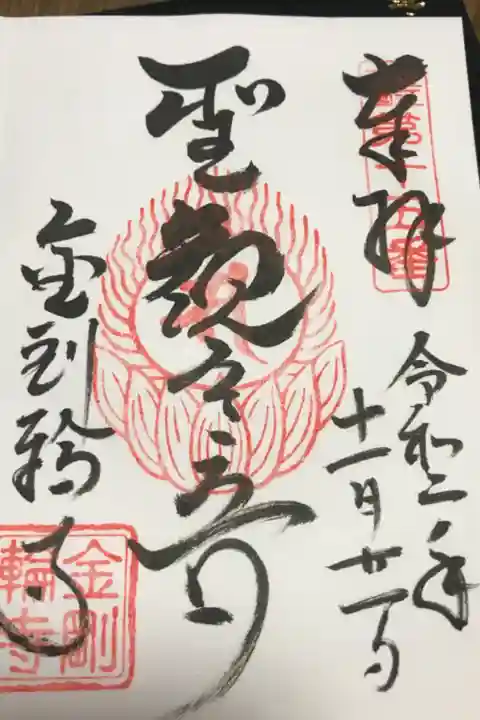 奉拝
第十五番
令和二年
十一月廿一日
聖観世音
金剛輪寺
金剛
輪寺